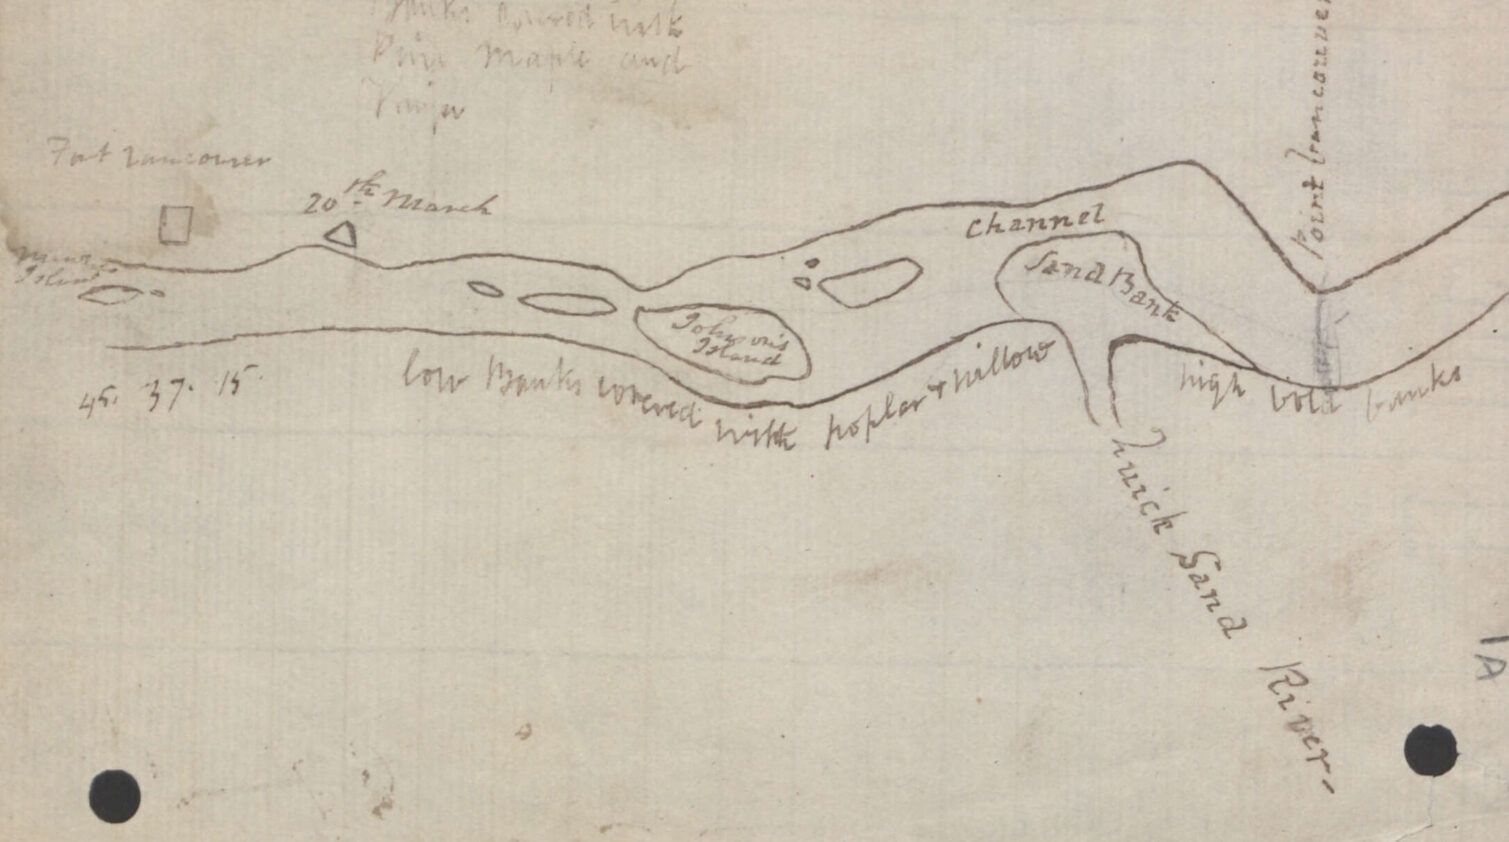 Banks covered with
Pine Maple and
Fort Vancouver
20th March
Island
Point Vancouver
Channel
Sand Bank
Johnson's
Island
45. 37. 15.
low Banks covered with poplar & willow
high bold banks
Quick Sand River
1A